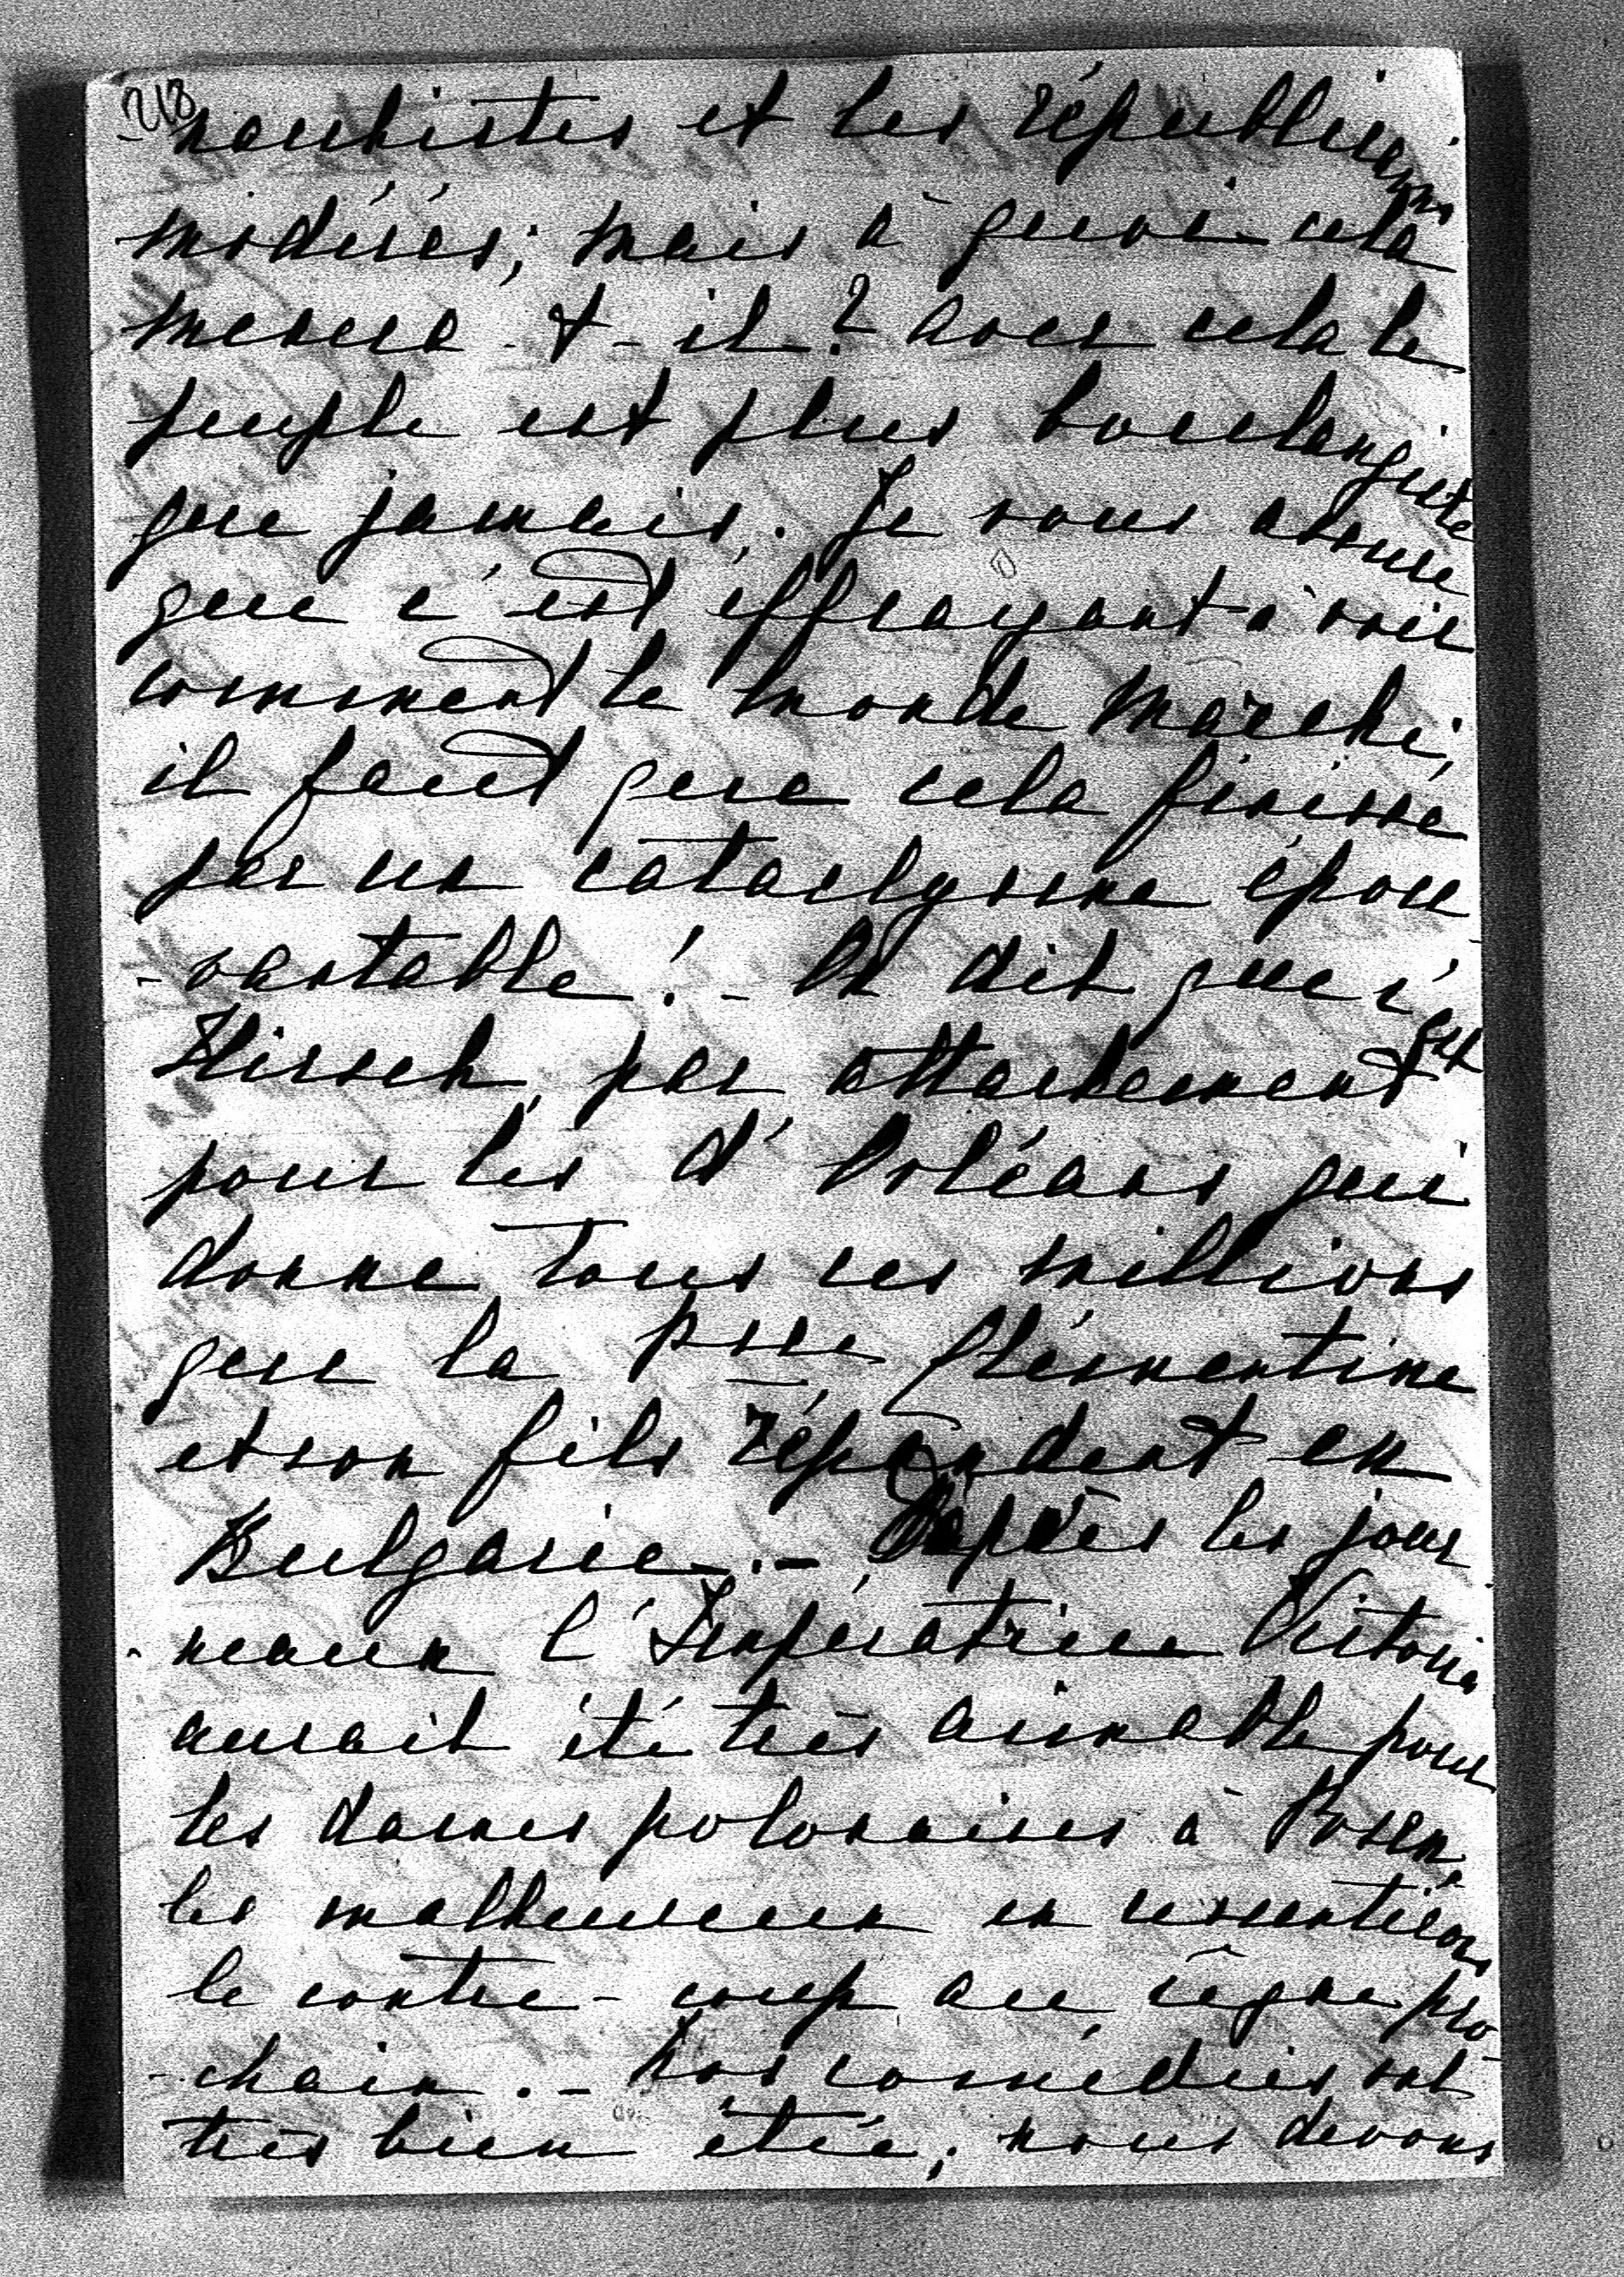 218
-narchistes et les républicains
modérés; mais à quoi cela
menera-t-il? Avec cela le
peuple est plus boulangiste
que jamais. Je vous assure
que c'est effrayant à voir
comment le monde marche;
il faut que cela finisse
par un cataclysme épou
-vantable! - On dit que c'est
Hirsch, par attachement
pour les d'Orléans qui
donne tous ces millions
que la Psse Clémentine
et son fils répandent en
Bulgarie. - D'après les jour
-neaux l'Impératrice Victoria
aurait été très aimable pour
les dames polonaises à Posen,
les malheureux en
le contre-coup au règne pro
-chain. - Nos comédies ont
très bien été; nous devons